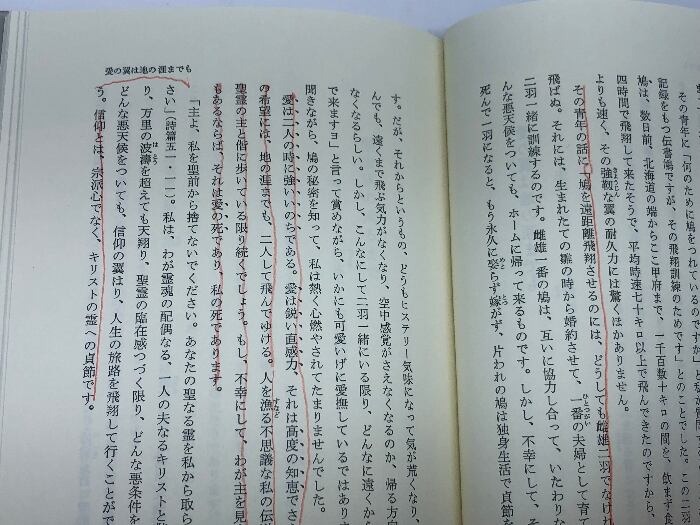 その青年に「何のために鳩をつれているのですか」ととが
記録をもつ伝書鳩ですが、その飛翔訓練のためです」とのことでした。この二羽
鳩は、数日前、北海道の端からここ甲府まで、一千百数十キロの間を、飲まず食
四時間で飛翔して来たそうで、平均時速七十キロ以上で飛んできたのですから、
よりも速く、その強靭な翼の耐久力には驚くほかありません。
その青年の話に「鳩を遠距離飛翔させるのには、どうしても雌雄二羽でなけ
飛ばぬ。それには、生まれたての雛の時から婚約させて、一番の夫婦として育て
二羽一緒に訓練するのです。雌雄一番の鳩は、互いに協力し合って、いたわりな
んな悪天候をついても、ホームに帰って来るものです。しかし、不幸にして、そ
死んで一羽になると、もう永久に娶らず嫁がず、片われの鳩は独身生活で貞節を
す。だが、それからというもの、どうもヒステリー気味になって気が荒くなり、
んでも、遠くまで飛ぶ気力がなくなり、空中感覚がさえなくなるのか、帰る方向
なくなるらしい。しかし、こんなにして二羽一緒にいる限り、どんなに遠くから
で来ますョ」と言って賞めながら、いかにも可愛いげに愛撫しているではありま
聞きながら、鳩の秘密を知って、私は熱く心燃やされてたまりませんでした。
愛は二人の時に強いいのちである。愛は鋭い直感力、それは高度の知恵でさ
の希望には、地の涯までも、二人して飛んでゆける。人を漁る不思議な私の伝
聖霊の主と偕に歩いている限り続くでしょう。もし、不幸にして、わが主を見
もあるならば、それは愛の死であり、私の死であります。
「主よ、私を聖前から捨てないでください。あなたの聖なる霊を私から取ら
さい」（詩篇五一・一一）。私は、わが霊魂の配偶なる、一人の夫なるキリストと
り、万里の波濤を超えても天翔り、聖霊の臨在感つづく限り、どんな悪条件を
どんな悪天候をついても、信仰の翼はり、人生の旅路を飛翔して行くことがで
う。信仰とは、宗派心でなく、キリストの霊への貞節です。
愛の翼は地の涯までも